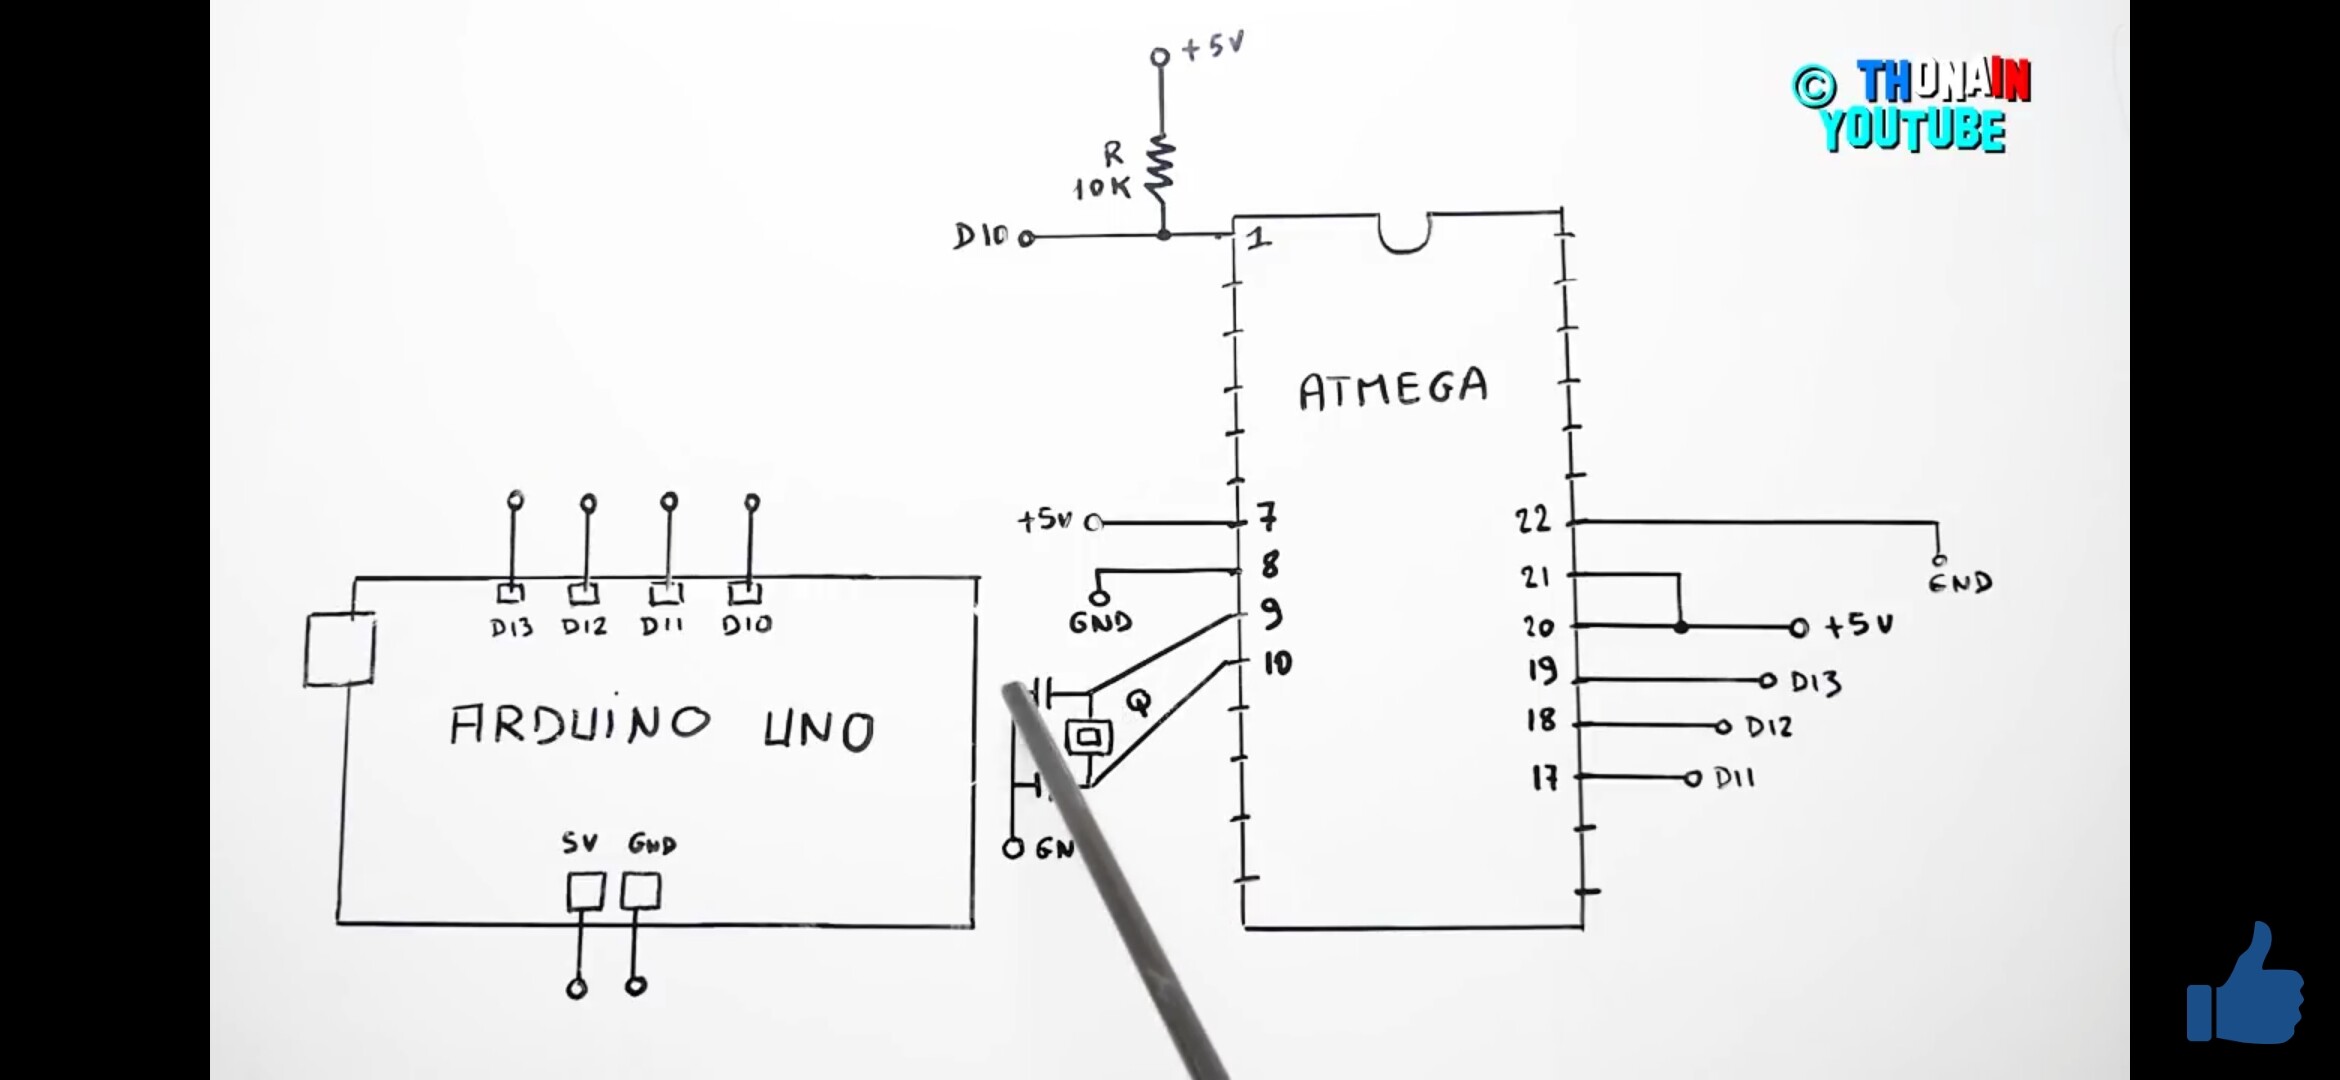 +5V
© THONAIN
YOUTUBE
R
10K
D10
1
ATMEGA
+5V
7
22
8
21
GND
END
9
20
+5V
D13
D12
D11
D10
10
19
D13
Q
ARDUINO UNO
18
D12
17
D11
5V
GND